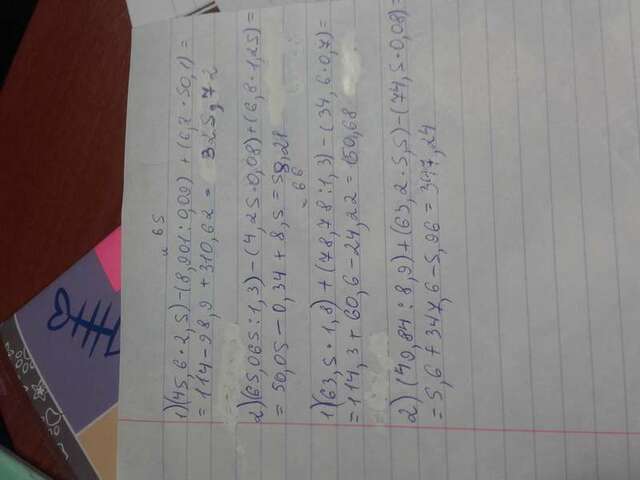 № 65
1)(45,6·2,5)-(8,901:0,09)+(6,2·50,1)=
=114-98,9+310,62= 325,72
2)(65,065:1,3)-(4,25·0,08)+(6,8·1,25)=
=50,05-0,34+8,5=58,21
№ 66
1)(63,5·1,8)+(78,78:1,3)-(34,6·0,7)=
=114,3+60,6-24,22=150,68
2)(49,84:8,9)+(63,2·5,5)-(74,5·0,08)=
=5,6+347,6-5,96=347,24